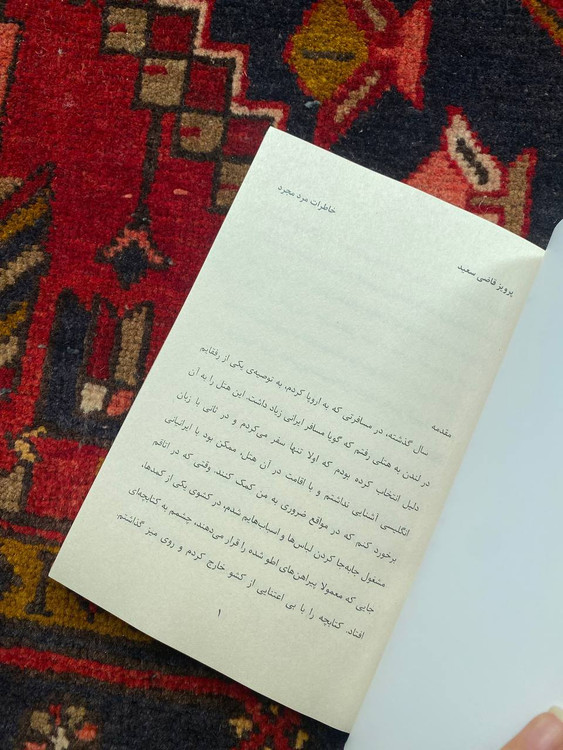 خاطرات مرد مجرد
پرویز قاضی سعید
مقدمه
سال گذشته، در مسافرتی که به اروپا کردم، به توصیه‌ی یکی از رفقایم
در لندن به هتلی رفتم که گویا مسافر ایرانی زیاد داشت. این هتل را به آن
دلیل انتخاب کرده بودم که اولا تنها سفر می‌کردم و در ثانی با زبان
انگلیسی آشنایی نداشتم و با اقامت در آن هتل، ممکن بود با ایرانیانی
برخورد کنم که در مواقع ضروری به من کمک کنند. وقتی که در اتاقم
مشغول جابه‌جا کردن لباس‌ها و اسباب‌هایم شدم، در کشوی یکی از کمدها،
جایی که معمولا پیراهن‌های اطو شده را قرار می‌دهند، چشمم به کتابچه‌ای
افتاد. کتابچه را با بی اعتنایی از کشو خارج کردم و روی میز گذاشتم.
۱